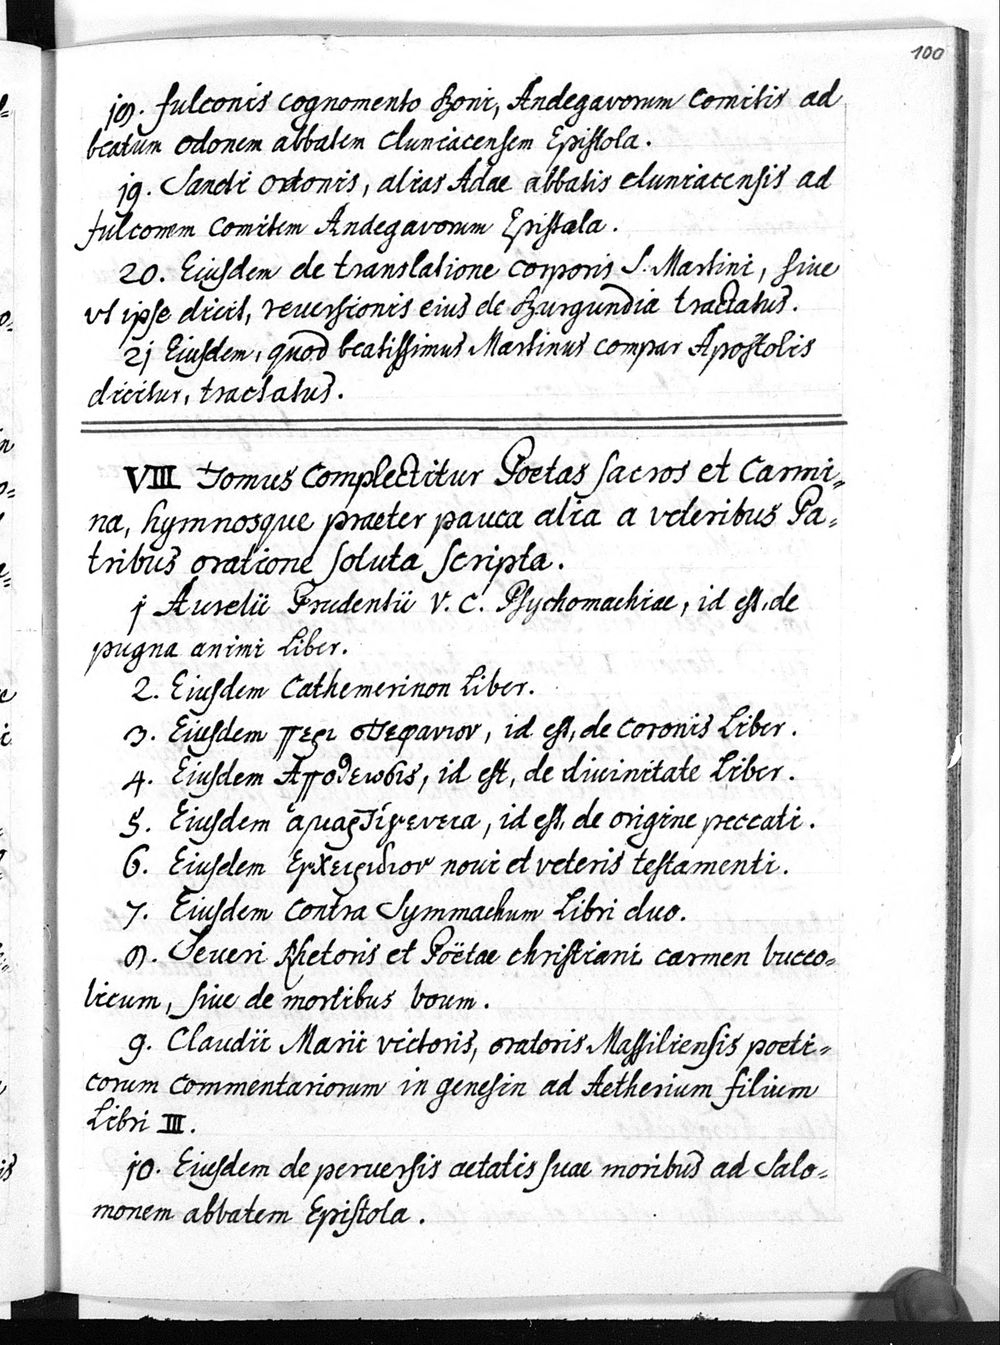 100
18. Fulconis cognomento Boni, Andegavorum Comitis ad
beatum Odonem abbatem Cluniacensem Epistola.
19. Sancti Odonis, alias Adae abbatis cluniacensis ad
fulconem Comitem Andegavorum Epistola.
20. Eiusdem de translatione corporis S. Martini, siue
vt ipse dicit, reuersionis eius de Burgundia tractatus.
21 Eiusdem, quod beatissimus Martinus compar Apostolis
dicitur, tractatus.
VIII Tomus Complectitur Poetas sacros et Carmi=
na, hymnosque praeter pauca alia a veteribus Pa=
tribus oratione soluta scripta.
1 Aurelii Prudentii V. C. Psychomachiae, id est, de
pugna animi Liber.
2. Eiusdem Cathemerinon Liber.
3. Eiusdem περι στεφανιον, id est, de Coronis Liber.
4. Eiusdem Αποθεωσις, id est, de diuinitate Liber.
5. Eiusdem ἁμαρτίγενεια, id est, de origine peccati.
6. Eiusdem Ενχειριδιον noui et veteris testamenti.
7. Eiusdem Contra Symmachum Libri duo.
8. Seueri Rhetoris et Poëtae christiani carmen bucco=
licum, siue de mortibus boum.
9. Claudii Marii victoris, oratoris Massiliensis poeti=
corum Commentariorum in genesin ad Aetherium filium
Libri III.
10. Eiusdem de peruersis aetatis suae moribus ad Salo=
monem abbatem Epistola.